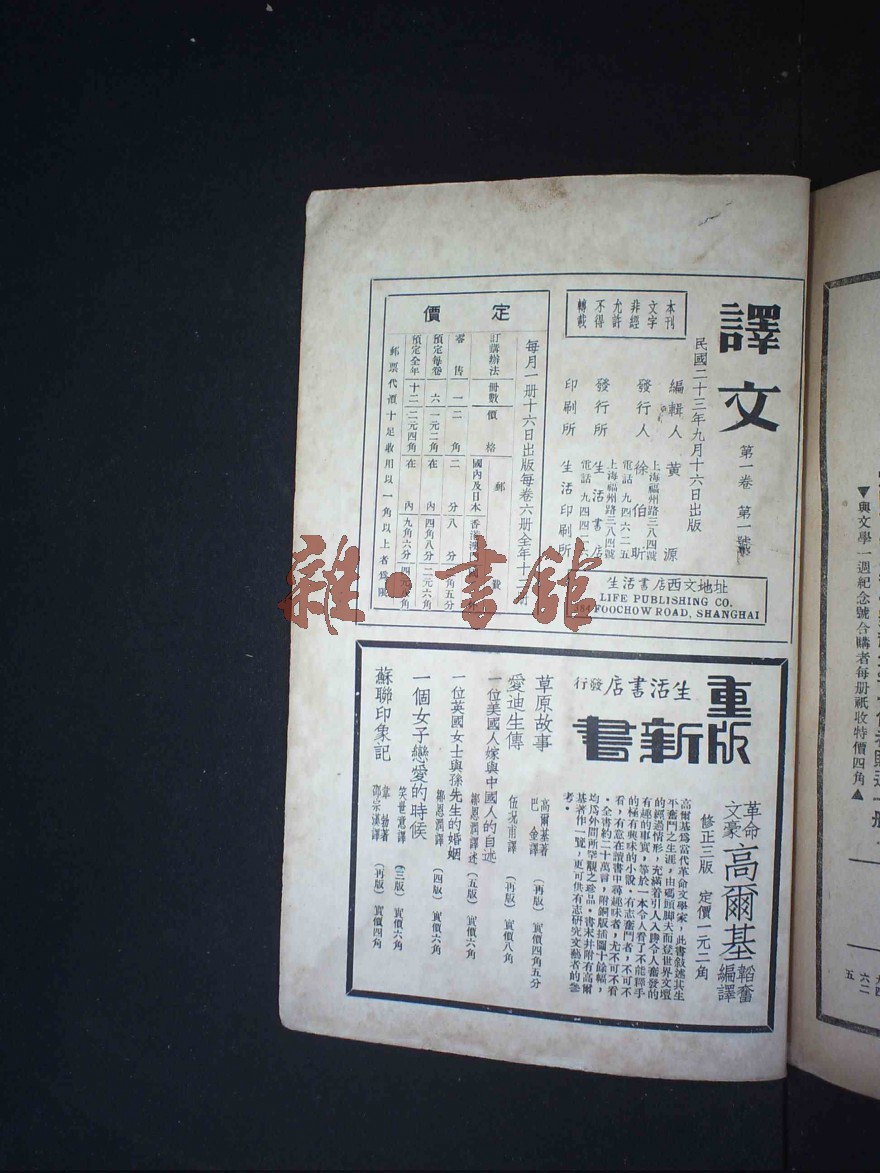 譯文
第一卷 第一號
民國二十三年九月十六日出版
本刊
文字
非經
允許
不得
轉載
編輯人 黃源
發行人 徐伯昕
上海福州路三八四號
電話九四六二五
發行所 生活書店
上海福州路三八四號
電話九四四二
印刷所 生活印刷所
生活書店西文地址
LIFE PUBLISHING CO.
384 FOOCHOW ROAD, SHANGHAI
定價
每月一册十六日出版每卷六册全年十二册
訂購辦法 册數 價格 郵費
國內及日本 香港澳門
零售 一 二角 二分 八分
預定每卷 六 一元二角 在內 四角八分 二元六角
預定全年 十二 二元四角 在內 九角六分
郵票代價十足收用以一角以上者爲限
重版新書
生活書店發行
革命文豪高爾基
韜奮編譯
修正三版 定價一元二角
高爾基爲當代革命文學家，此書敍述其生
平奮鬥之生涯，由碼頭脚夫而登世界文壇
的經過情形，充滿着引人入勝令人奮發的
有趣的事實，等於一本令人看了不能釋手
的極有興味的小說。有志奮鬥者，不可不
看，有意在讀書中尋趣味者，尤不可不看
。全書約二十萬言，附銅版插圖十餘幅，
均爲外間所罕覯之珍品。書末并附有高爾
基著作一覽，更可供有志研究文藝者的參
考。
草原故事 高爾基著 巴金譯 （再版） 實價四角五分
愛迪生傳 伍況甫譯 （再版） 實價八角
一位美國人嫁與中國人的自述 鄒恩潤譯述 （五版） 實價六角
一位英國女士與孫先生的婚姻 鄒恩潤譯 （四版） 實價六角
一個女子戀愛的時候 笑世意譯 （三版） 實價六角
蘇聯印象記 韋勃著 鄒宗漢譯 （再版） 實價四角
▼與文學一週紀念號合購者每册祇收特價四角▲
雜·書館